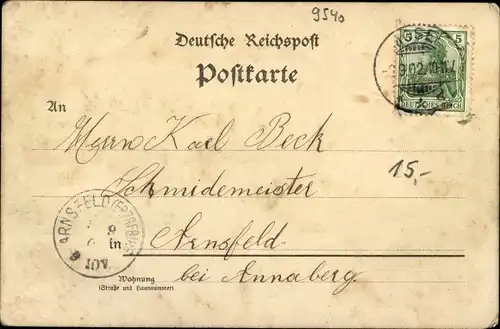 9540
Deutsche Reichspost
Postkarte
5
DEUTSCHES REICH
9.02. 10-11V
An
Herrn Karl Beck
Schmidemeister
15,-
in Arnsfeld
bei Annaberg.
ARNSFELD (ERZGEBIRGE)
Wohnung
(Straße und Hausnummer)